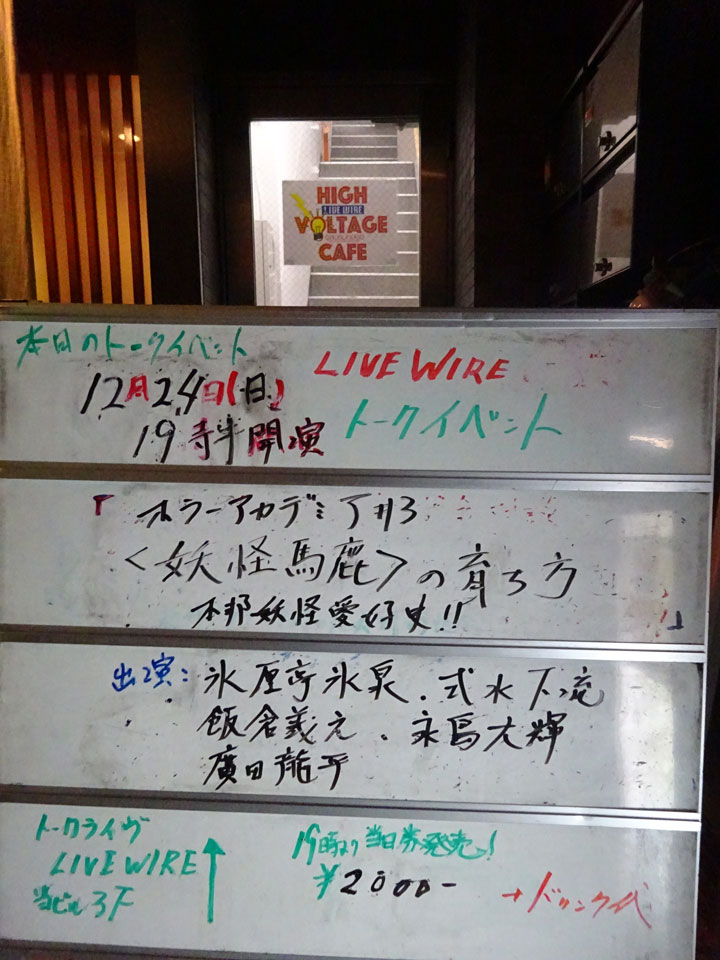 HIGH
LIVE WIRE
VOLTAGE
CAFE
本日のトークイベント
LIVE WIRE
12月24日(日)
トークイベント
19時半開演
『ホラーアカデミア#3
<妖怪馬鹿>の育ち方
本邦妖怪愛好史!!』
出演:氷厘亭氷泉.式水下流
飯倉義之.永島大輝
廣田龍平
トークライヴ
LIVE WIRE
当ビル3F
19時より当日券発売っ!
¥2000-
+ドリンク代